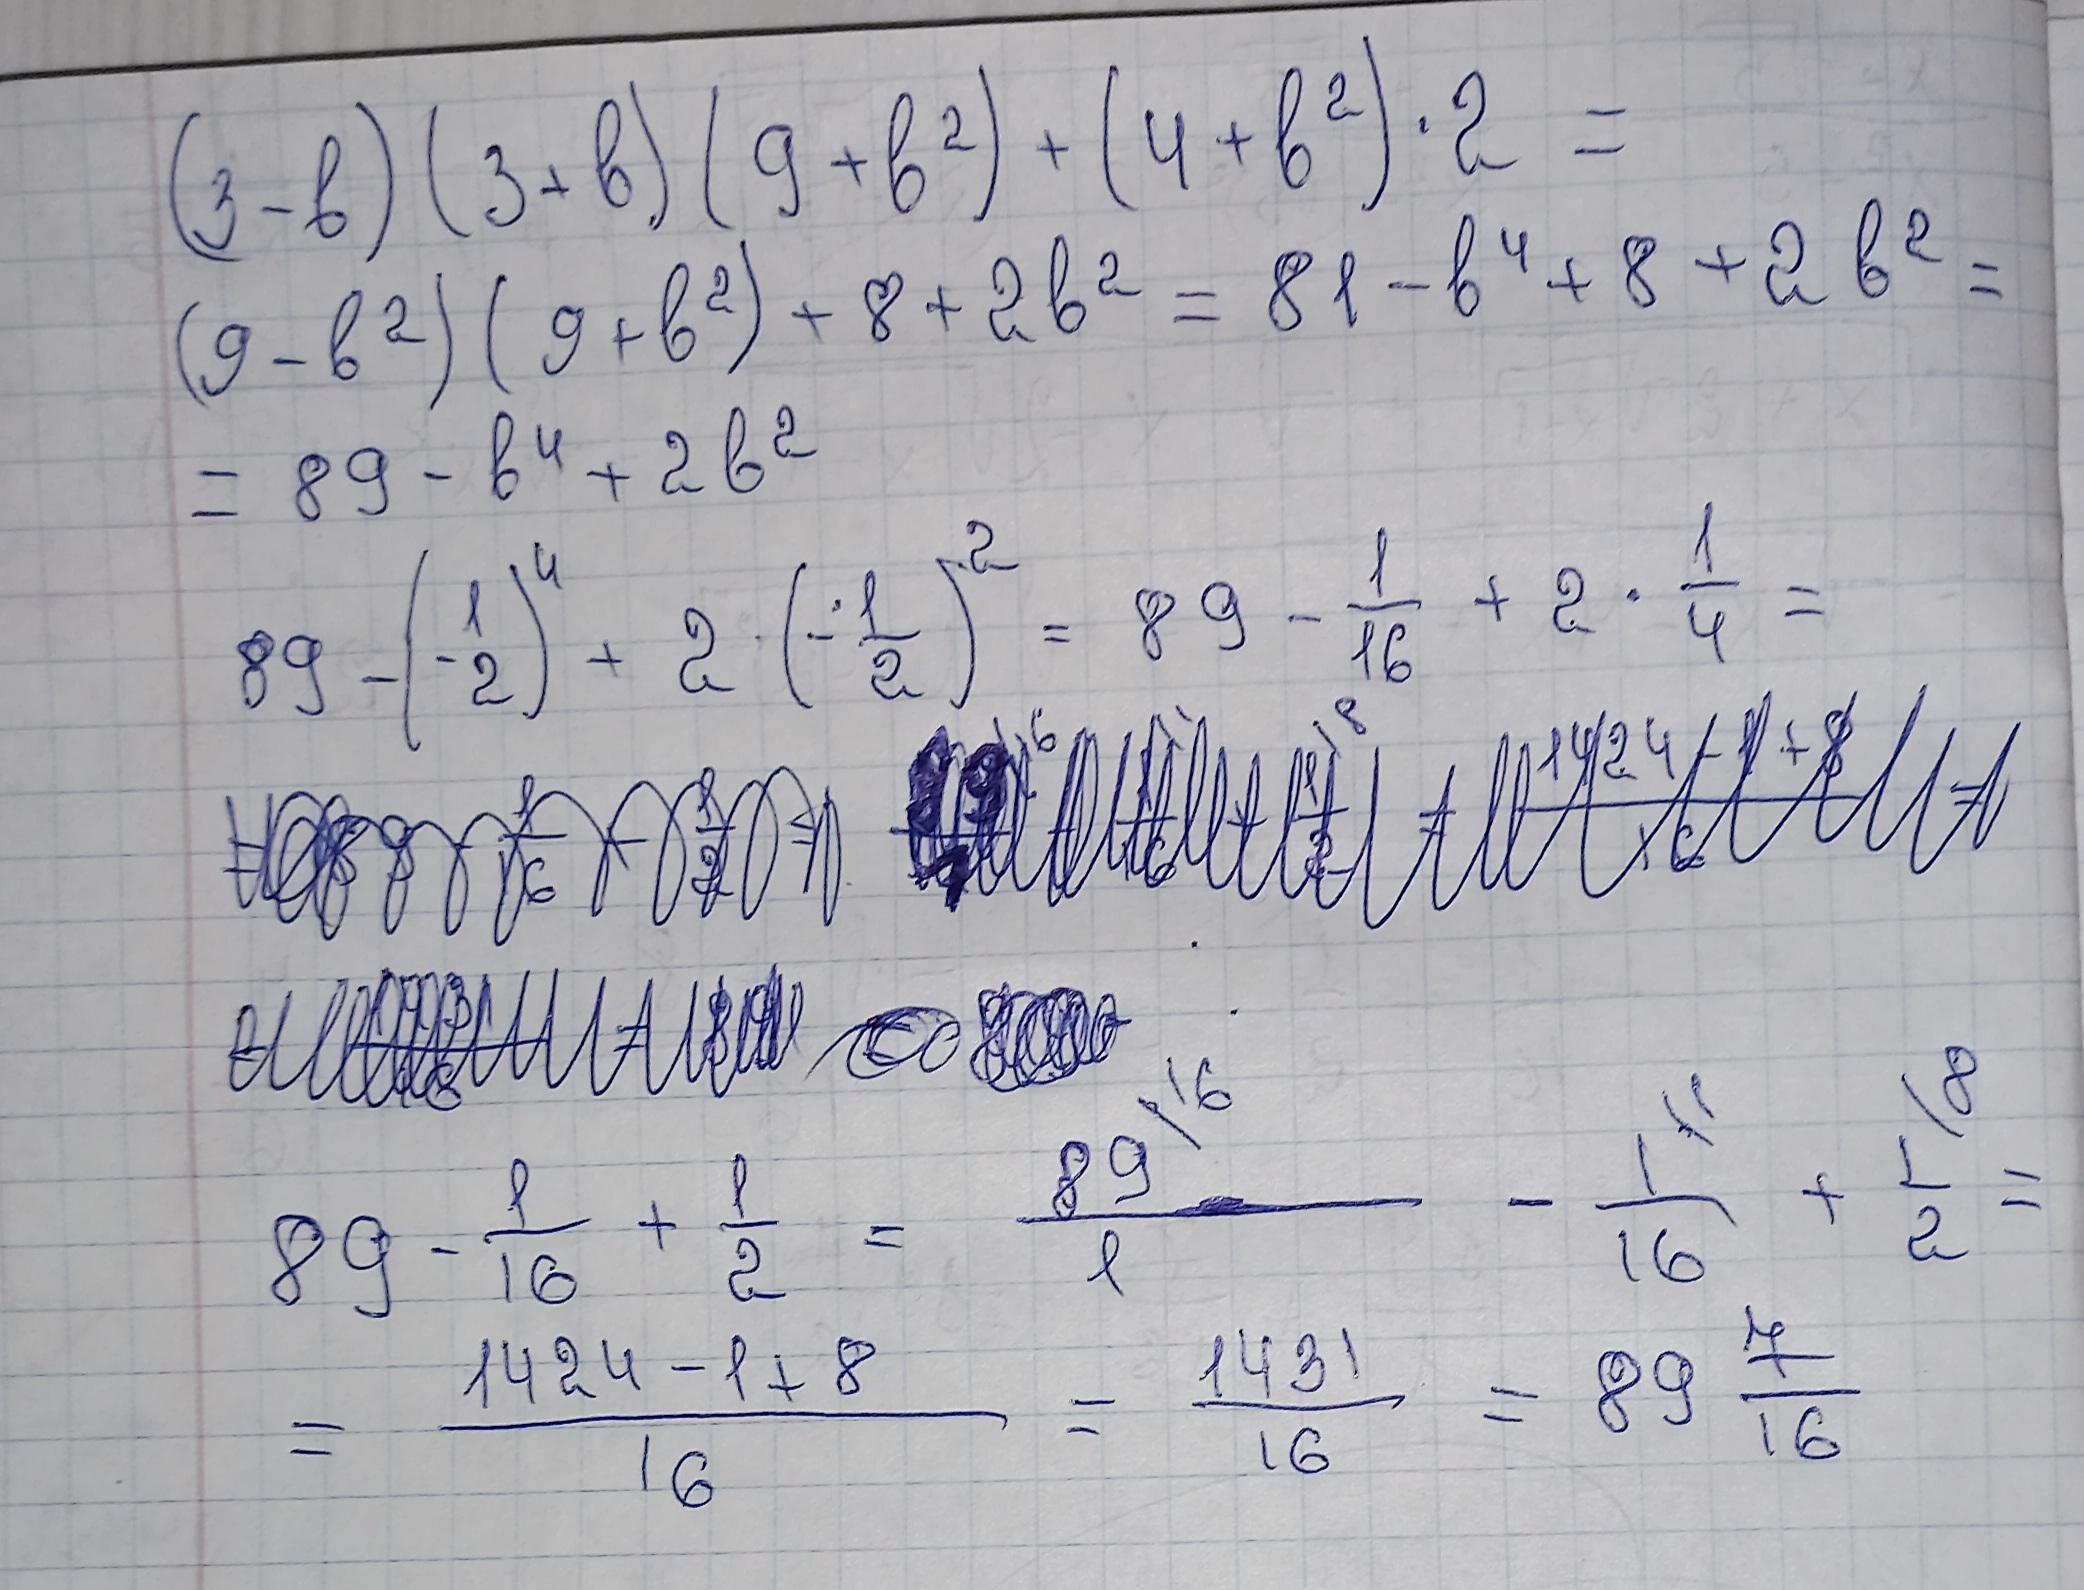 (3-b)(3+b)(9+b²)+(4+b²)·2=
(9-b²)(9+b²)+8+2b²=81-b⁴+8+2b²=
=89-b⁴+2b²
89-(-1/2)⁴+2·(-1/2)²=89-1/16+2·1/4=
89-1/16+1/2=89\16/1-1\1/16+1\8/2=
=(1424-1+8)/16=1431/16=89 7/16